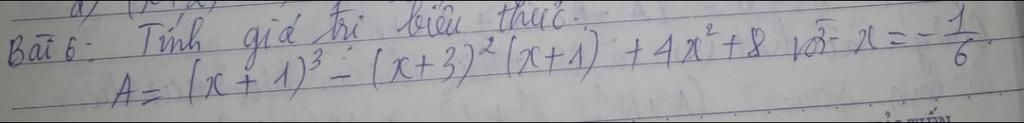 a) (x
Bài 6: Tính giá trị biểu thức.
A = (x + 1)³ - (x+3)² (x+1) + 4x² + 8 với x = - 1/6